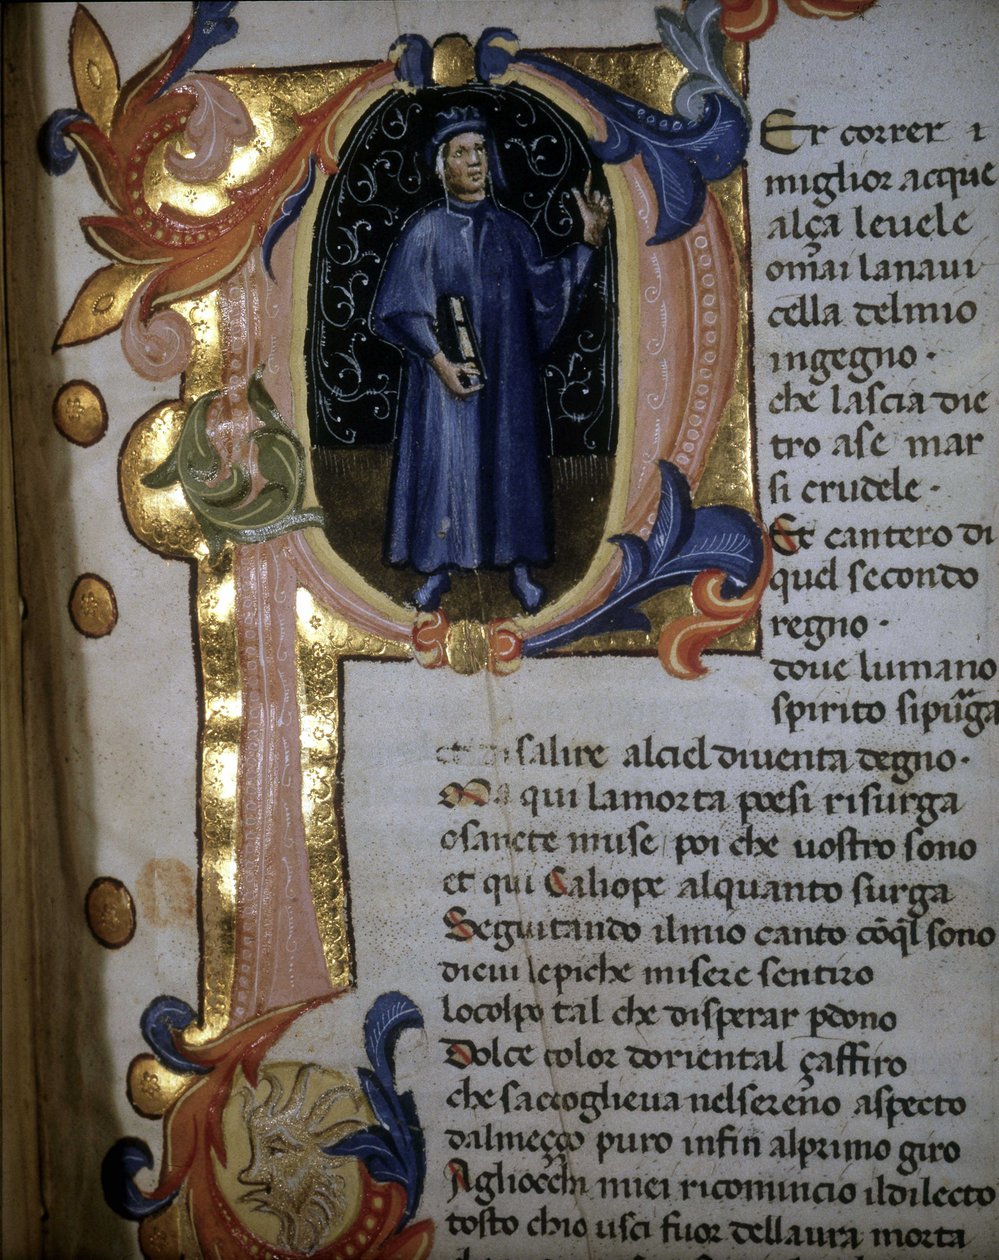 Er correr i
miglior acque
alça leuele
omai lanaui
cella delmio
ingegno·
che lascia die
tro ase mar
si crudele·
Et cantero di
quel secondo
regno·
doue lumano
spirito sipurga
et di salire alciel diuenta degno·
Ma qui lamorta poesi risurga
o sancte muse poi che uostro sono
et qui Caliope alquanto surga
Seguitando ilmio canto cō ql sono
dicui lepiche misere sentiro
locolpo tal che disperar pdono
Dolce color doriental çaffiro
che saccoglieua nelsereno aspecto
dalmeçço puro infin alprimo giro
Agliocchi miei ricomincio ildilecto
tosto chio usci fuor dellaura morta